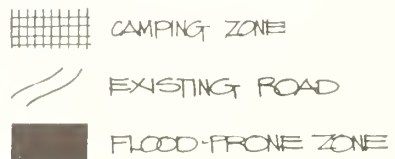 CAMPING ZONE
EXISTING ROAD
FLOOD-PRONE ZONE